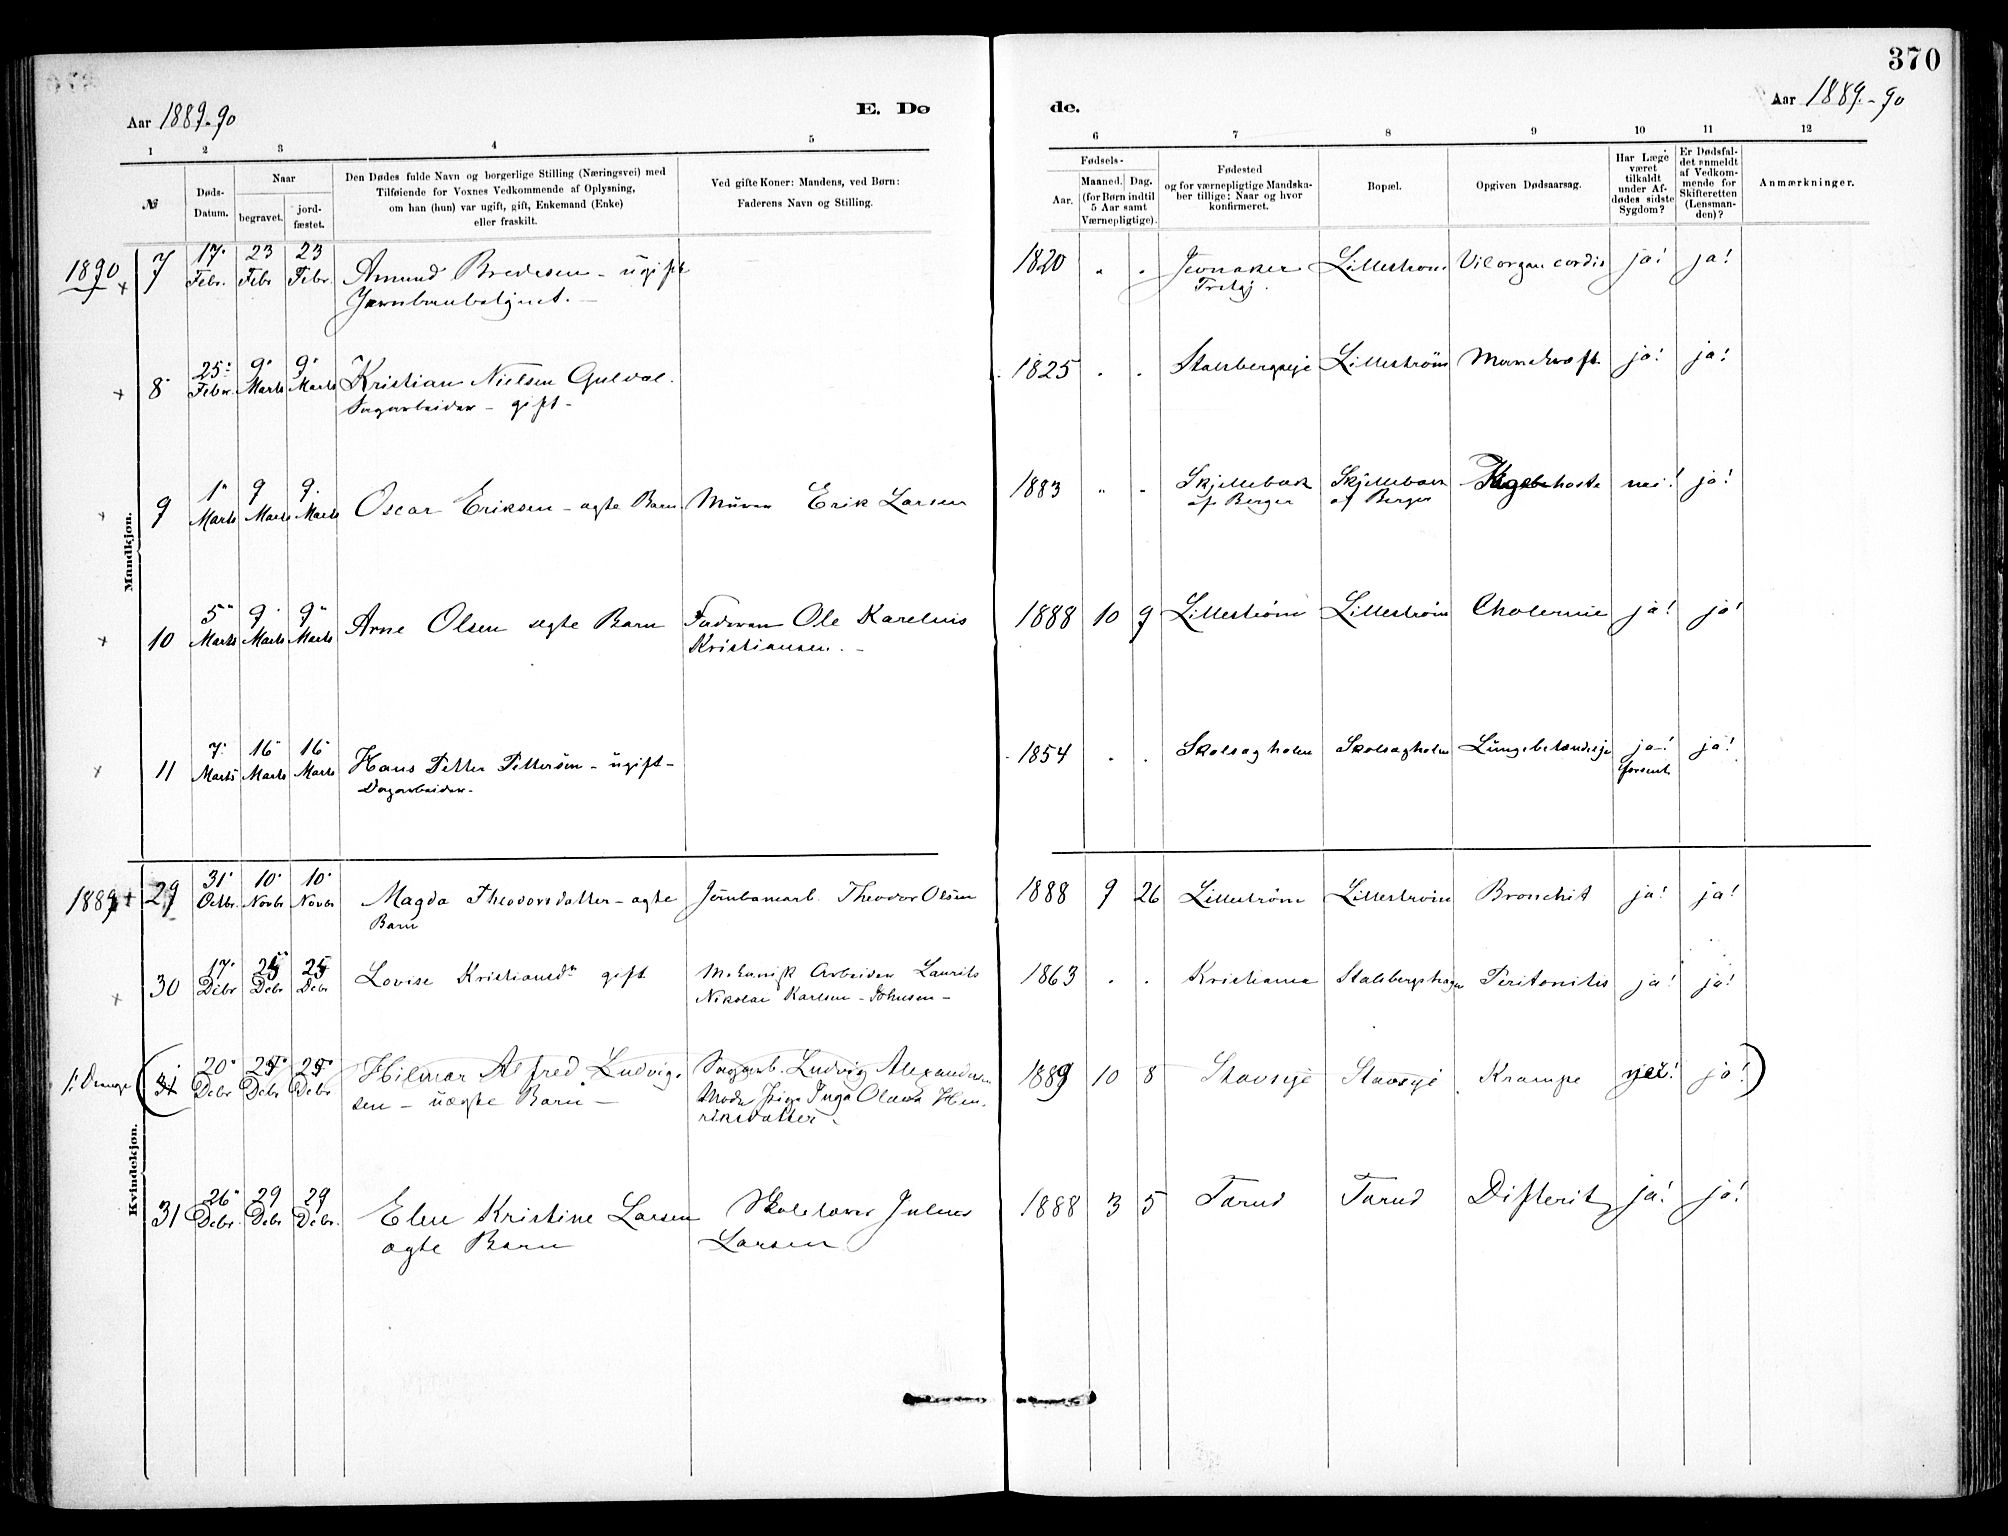 370
Aar 1889-90
E. Dø
de.
Aar 1889.-90
1 2 3 4 5 6 7 8 9 10 11 12
№
Døds-
Datum.
Naar
begravet.
jord-
fæstet.
Den Dødes fulde Navn og borgerlige Stilling (Næringsvei) med
Tilføiende for Voxnes Vedkommende af Oplysning,
om han (hun) var ugift, gift, Enkemand (Enke)
eller fraskilt.
Ved gifte Koner: Mandens, ved Børn:
Faderens Navn og Stilling.
Fødsels-
Aar.
Maaned.
Dag.
(for Børn indtil
5 Aar samt
Værnepligtige).
Fødested
og for værnepligtige Mandska-
ber tillige: Naar og hvor
konfirmeret.
Bopæl.
Opgiven Dødsaarsag.
Har Læge
været
tilkaldt
under Af-
dødes sidste
Sygdom?
Er Dødsfal-
det anmeldt
af Vedkom-
mende for
Skifteretten
(Lensman-
den)?
Anmærkninger.
Mandkjøn.
1890 + 7 17. Febr. 23 Febr 23 Febr. Amund Bredesen - ugift 1820 " " Jevnaker Lillestrøm Vit. organ cordis ja! ja!
+ 8 25. Febr. 9. Marts 9. Marts Kristian Nielsen Gulval. 1825 . . Stalsbergeje Lillestrøm ja! ja!
Sagarbeider - gift -
+ 9 1. Marts 9 Marts 9. Marts Oscar Eriksen - ægte Barn. Murer Erik Larsen 1883 " " Skjellebæk Skjellebæk nei! ja!
af Berger af Berger
+ 10 5. Marts 9. Marts 9. Marts Arne Olsen ægte Barn Ole Karelius 1888 10 9 Lillestrøm Lillestrøm Cholerine ja! ja!
Kristiansen. -
+ 11 7. Marts 16 Marts 16 Marts Hans Petter Pettersen - ugift - 1854 . . Skolsagholen Skolsagholen Lungebetændelse ja! ja!
Dagarbeider - forsent
Kvindekjøn.
1889 + 29 31. Octbr. 10. Novbr 10. Novbr Magda Theodorsdatter - ægte Jernbanearb. Theodor Olsen 1888 9 26 Lillestrøm Lillestrøm Bronchit ja! ja!
Barn
+ 30 17. Debr 25 Debr 25 Debr Lovise Kristiansdr gift Mekanisk Arbeider Laurits 1863 . . Kristiania Stalsberghagen Peritonitis ja! ja!
Nikolai Karlsen - Johnsen -
(31 20. Debr 25 Debr 25 Debr Hilmar Alfred Ludvig- Sagarb. Ludvig Alexandersen 1889 10 8 Stavseje Stavseje Krampe nei! ja!)
sen - uægte Barn - Moder Pige Inga Olava Hen-
riksdatter -
31 26. Debr. 29 Debr 29 Debr. Elen Kristine Larsen Skolelærer Julius 1888 3 5 Tærud Tærud Difterit ja! ja!
ægte Barn Larsen